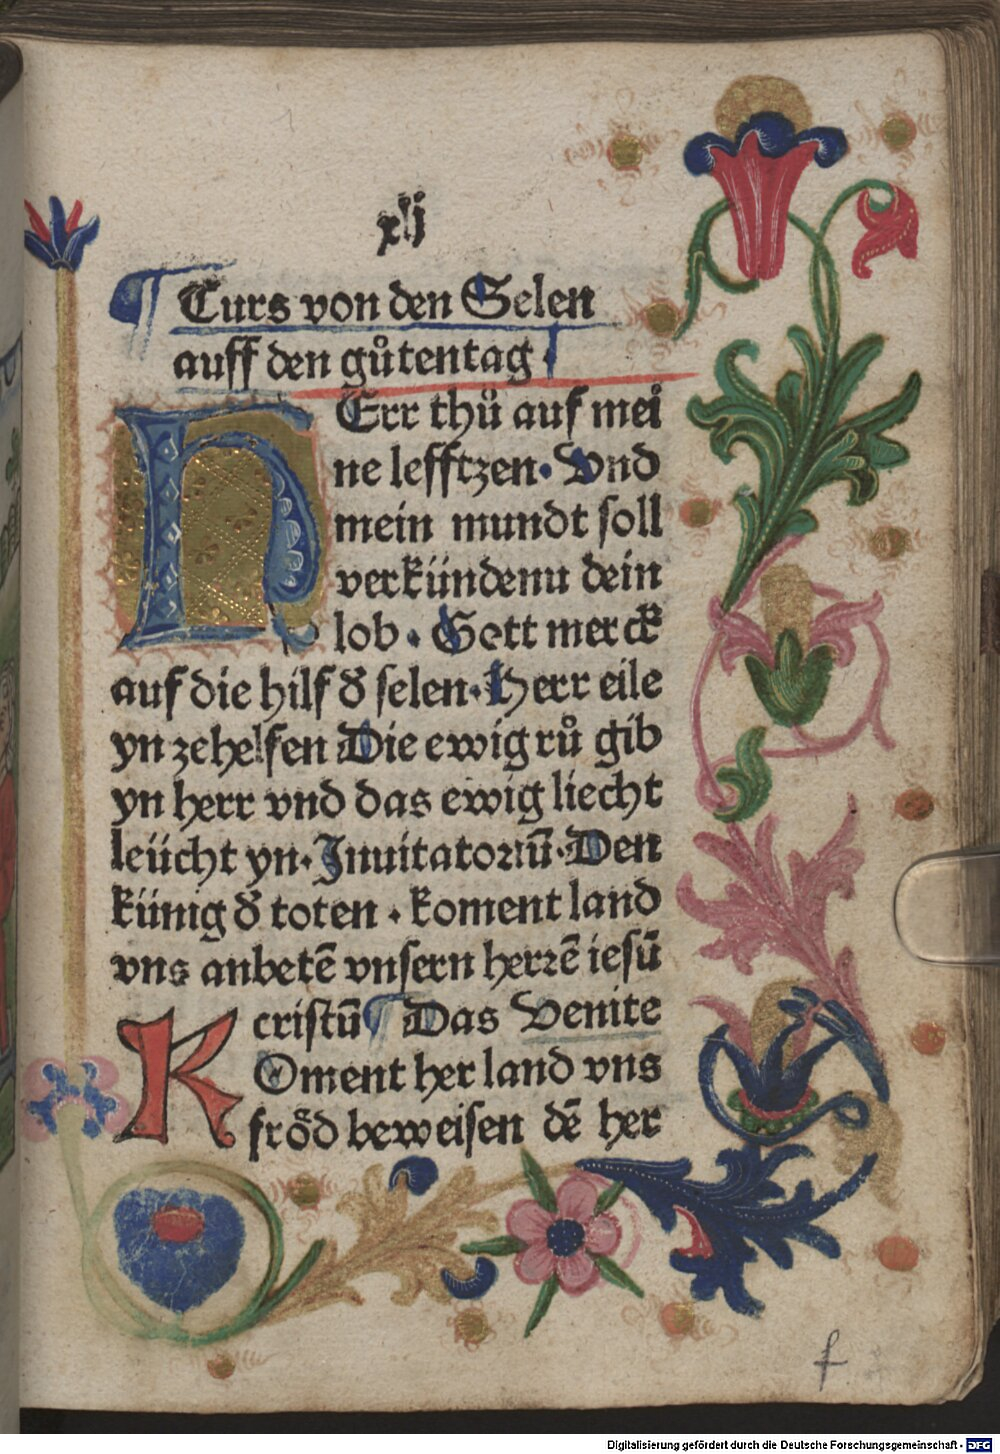 xlj
¶ Curs von den Selen
auff den gůtentag
HErr thů auf mei
ne lefftzen. Vnd
mein mundt soll
verkündenu dein
lob. Gott merck
auf die hilf d̄ selen. Herr eile
yn zehelfen Die ewig rů gib
yn herr vnd das ewig liecht
leücht yn. Inuitatoriū. Den
künig d̄ toten. koment land
vns anbetē vnsern herrē iesū
cristū ¶ Das Venite
KOment her land vns
frőd beweisen dē her
f
Digitalisierung gefördert durch die Deutsche Forschungsgemeinschaft - DFG